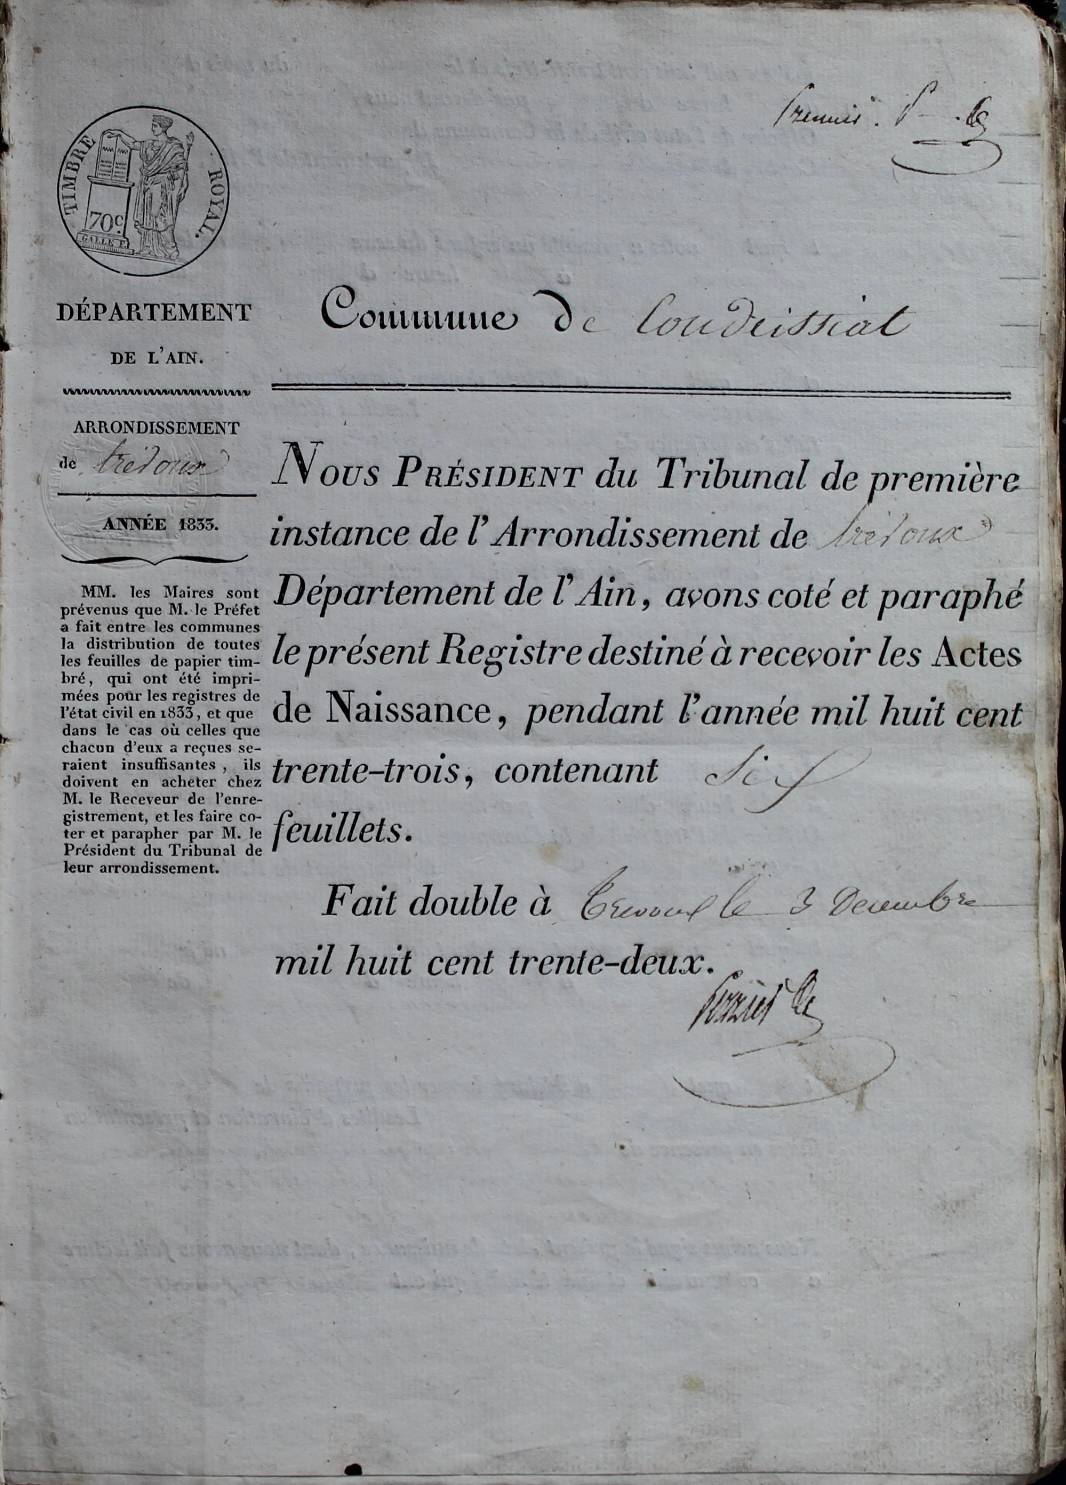 Premier.
TIMBRE ROYAL.
70c.
GALLE F.
DÉPARTEMENT
DE L'AIN.
Commune de Condeissiat
ARRONDISSEMENT
de trévoux
ANNÉE 1833.
MM. les Maires sont
prévenus que M. le Préfet
a fait entre les communes
la distribution de toutes
les feuilles de papier tim-
bré, qui ont été impri-
mées pour les registres de
l'état civil en 1833, et que
dans le cas où celles que
chacun d'eux a reçues se-
raient insuffisantes, ils
doivent en acheter chez
M. le Receveur de l'enre-
gistrement, et les faire co-
ter et parapher par M. le
Président du Tribunal de
leur arrondissement.
NOUS PRÉSIDENT du Tribunal de première
instance de l'Arrondissement de trévoux
Département de l'Ain, avons coté et paraphé
le présent Registre destiné à recevoir les Actes
de Naissance, pendant l'année mil huit cent
trente-trois, contenant Six
feuillets.
Fait double à Trevoux le 3 Decembre
mil huit cent trente-deux.